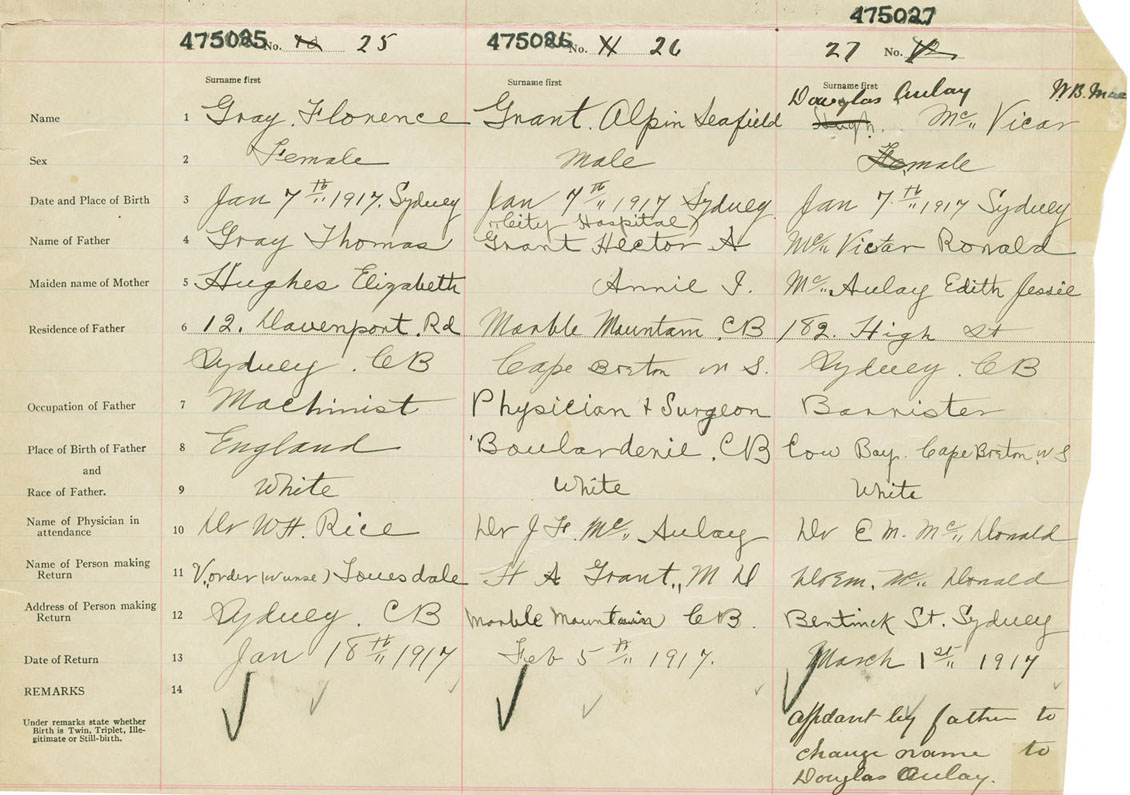 475027
475025 No. 25 475026 No. 26 27 No.
Surname first Surname first Surname first
Douglas Aulay W.B. Mac
Name 1 Gray. Florence Grant. Alpin Seafield Hugh. Mc Vicar
Sex 2 Female Male Female
Date and Place of Birth 3 Jan 7th 1917. Sydney Jan 7th 1917 Sydney Jan 7th 1917 Sydney
(City Hospital)
Name of Father 4 Gray Thomas Grant Hector A Mc Vicar Ronald
Maiden name of Mother 5 Hughes Elizabeth Annie I. Mc Aulay Edith Jessie
Residence of Father 6 12. Davenport. Rd Marble Mountain. CB 182. High St
Sydney. CB Cape Breton N S. Sydney. CB
Occupation of Father 7 Machinist Physician + Surgeon Barrister
Place of Birth of Father 8 England Boulardenie. CB Cow Bay. Cape Breton. N S
and
Race of Father. 9 White White White
Name of Physician in
attendance 10 Dr W H. Rice Dr J F. Mc Aulay Dr E M. Mc Donald
Name of Person making
Return 11 V. order (nurse) Touesdale H A Grant, M D Dr E m. Mc Donald
Address of Person making
Return 12 Sydney. CB Marble Mountain CB. Bentinck St. Sydney
Date of Return 13 Jan 18th 1917 Feb 5th 1917. March 1st 1917
REMARKS 14
Under remarks state whether
Birth is Twin, Triplet, Ille-
gitimate or Still-birth.
affidavit by father to
change name to
Douglas Aulay.